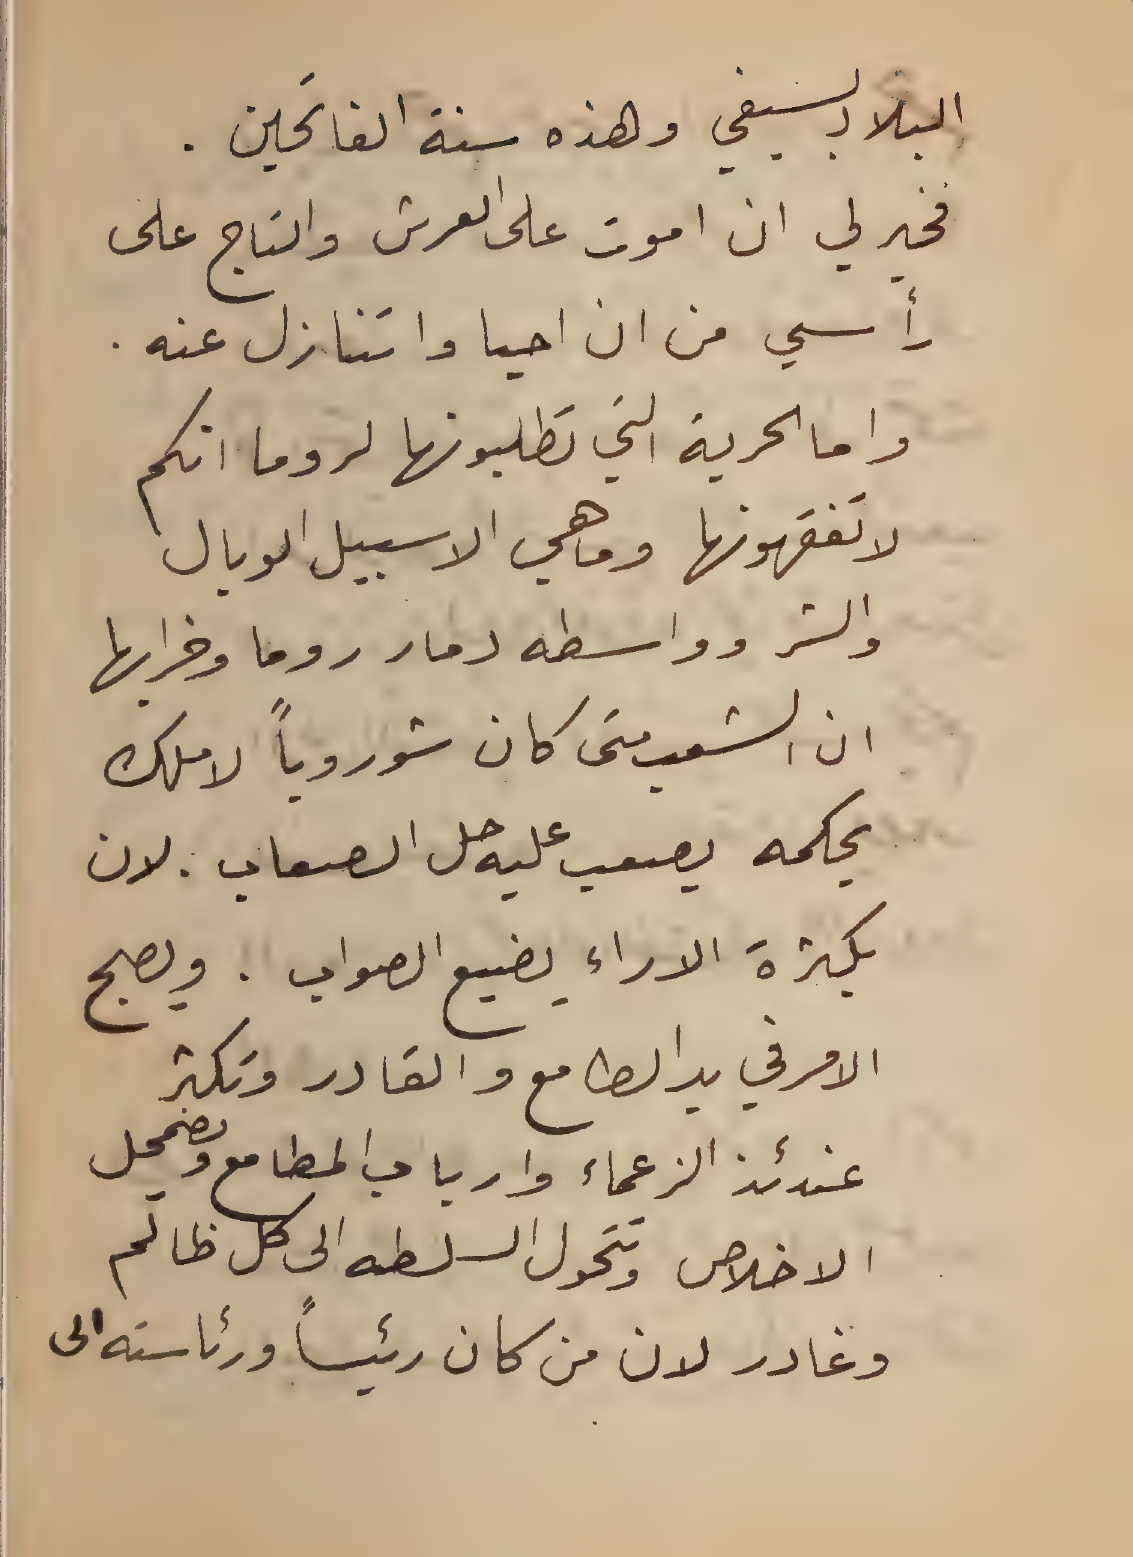 البلاد بسيفي وهذه سنة الفاتحين .
فخير لي ان اموت على العرش والتاج على
رأسي من ان احيا واتنازل عنه .
واما الحرية التي تطلبونها لروما انكم
لا تفقهونها وما هي الا سبيل الوبال
والشر وواسطه دمار روما وخرابها
ان الشعب متى كان شوروياً لا ملك
يحكمه يصعب عليه حل الصعاب . لان
بكثرة الاراء يضيع الصواب . ويصبح
الامر في يد الطامع والقادر وتكثر
عندئذ الزعماء وارباب المطامع ويضمحل
الاخلاص وتتحول السلطه الى كل ظالم
وغادر لان من كان رئيساً ورئاسته الى